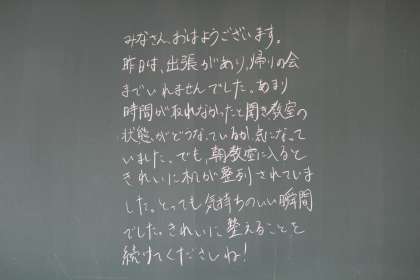 みなさん、おはようございます。
昨日は、出張があり、帰りの会
までいれませんでした。あまり
時間が取れなかったと聞き、教室の
状態がどうなっているか気になって
いました。でも、朝教室に入ると
きれいに机が整列されていま
した。とっても気持ちのいい瞬間
でした。きれいに整えることを
続けてくださいね！